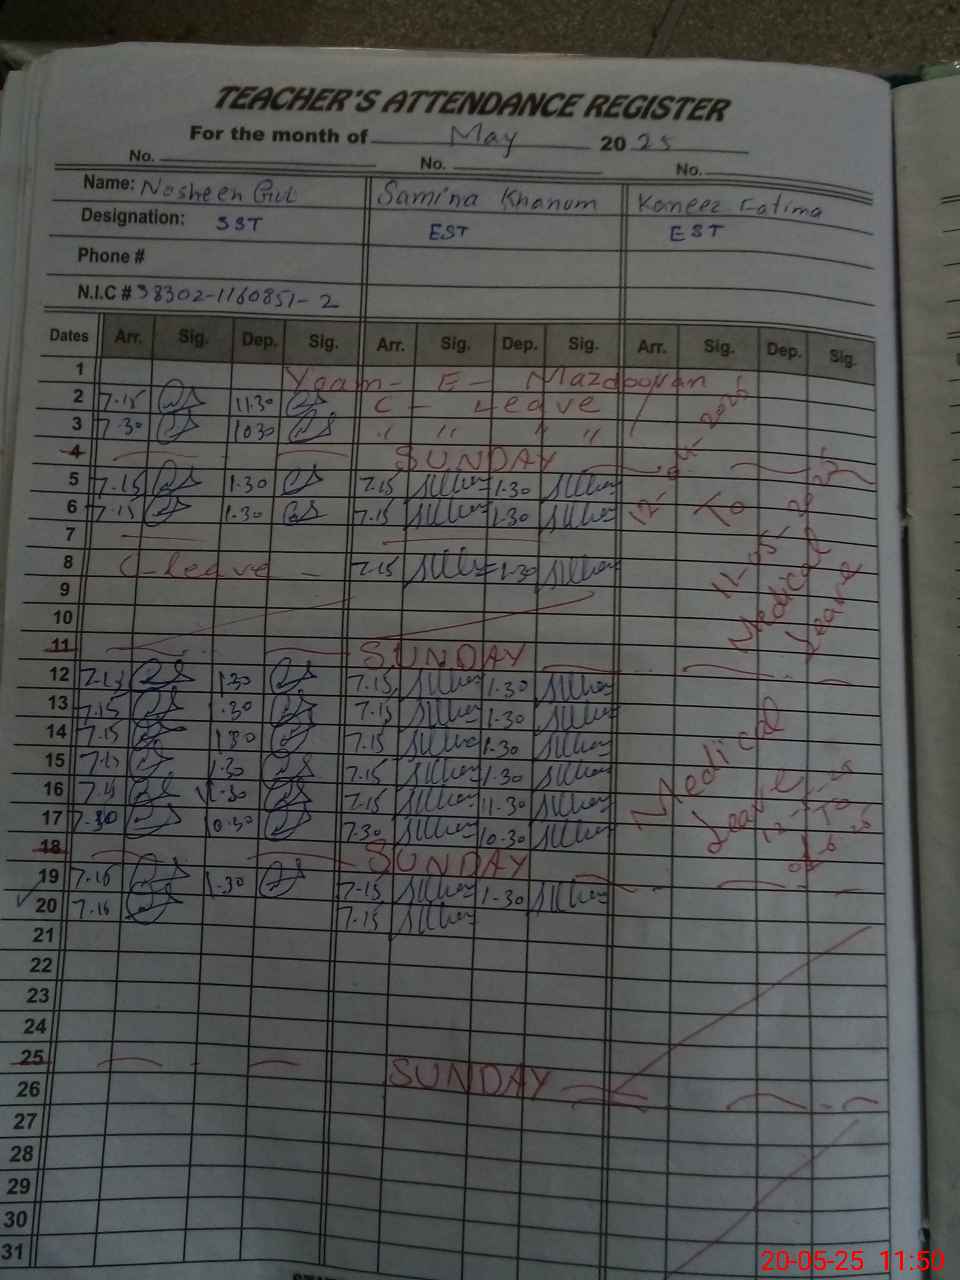 TEACHER'S ATTENDANCE REGISTER
For the month of May 20 25
No. No. No.
Name: Nosheen Gul Samina Khanum Kaneez Fatima
Designation: SST EST EST
Phone #
N.I.C # 38302-1160851-2
Dates Arr. Sig. Dep. Sig. Arr. Sig. Dep. Sig. Arr. Sig. Dep. Sig.
1 Yaam - E - Mazdooran
2 7.15 11.30 C - Leave
3 7.30 1030 " " " "
4 SUNDAY
5 7.15 1.30 7.15 1.30
6 7.15 1.30 7.15 1.30
7
8 C-leave - 7.15 1.30
9
10
11 SUNDAY
12 7.15 1.30 7.15 1.30
13 7.15 1.30 7.15 1.30
14 7.15 1.30 7.15 1.30
15 7.15 1.30 7.15 1.30
16 7.15 1.30 7.15 11.30
17 7.30 10.30 7.30 10.30
18 SUNDAY
19 7.15 1.30 7.15 1.30
20 7.15 7.15
21
22
23
24
25 SUNDAY
26
27
28
29
30
31
12-04-2025
To
11-05-2025
Medical
Leave
Medical
Leave
12-5-25
To
20-05-25 11:50